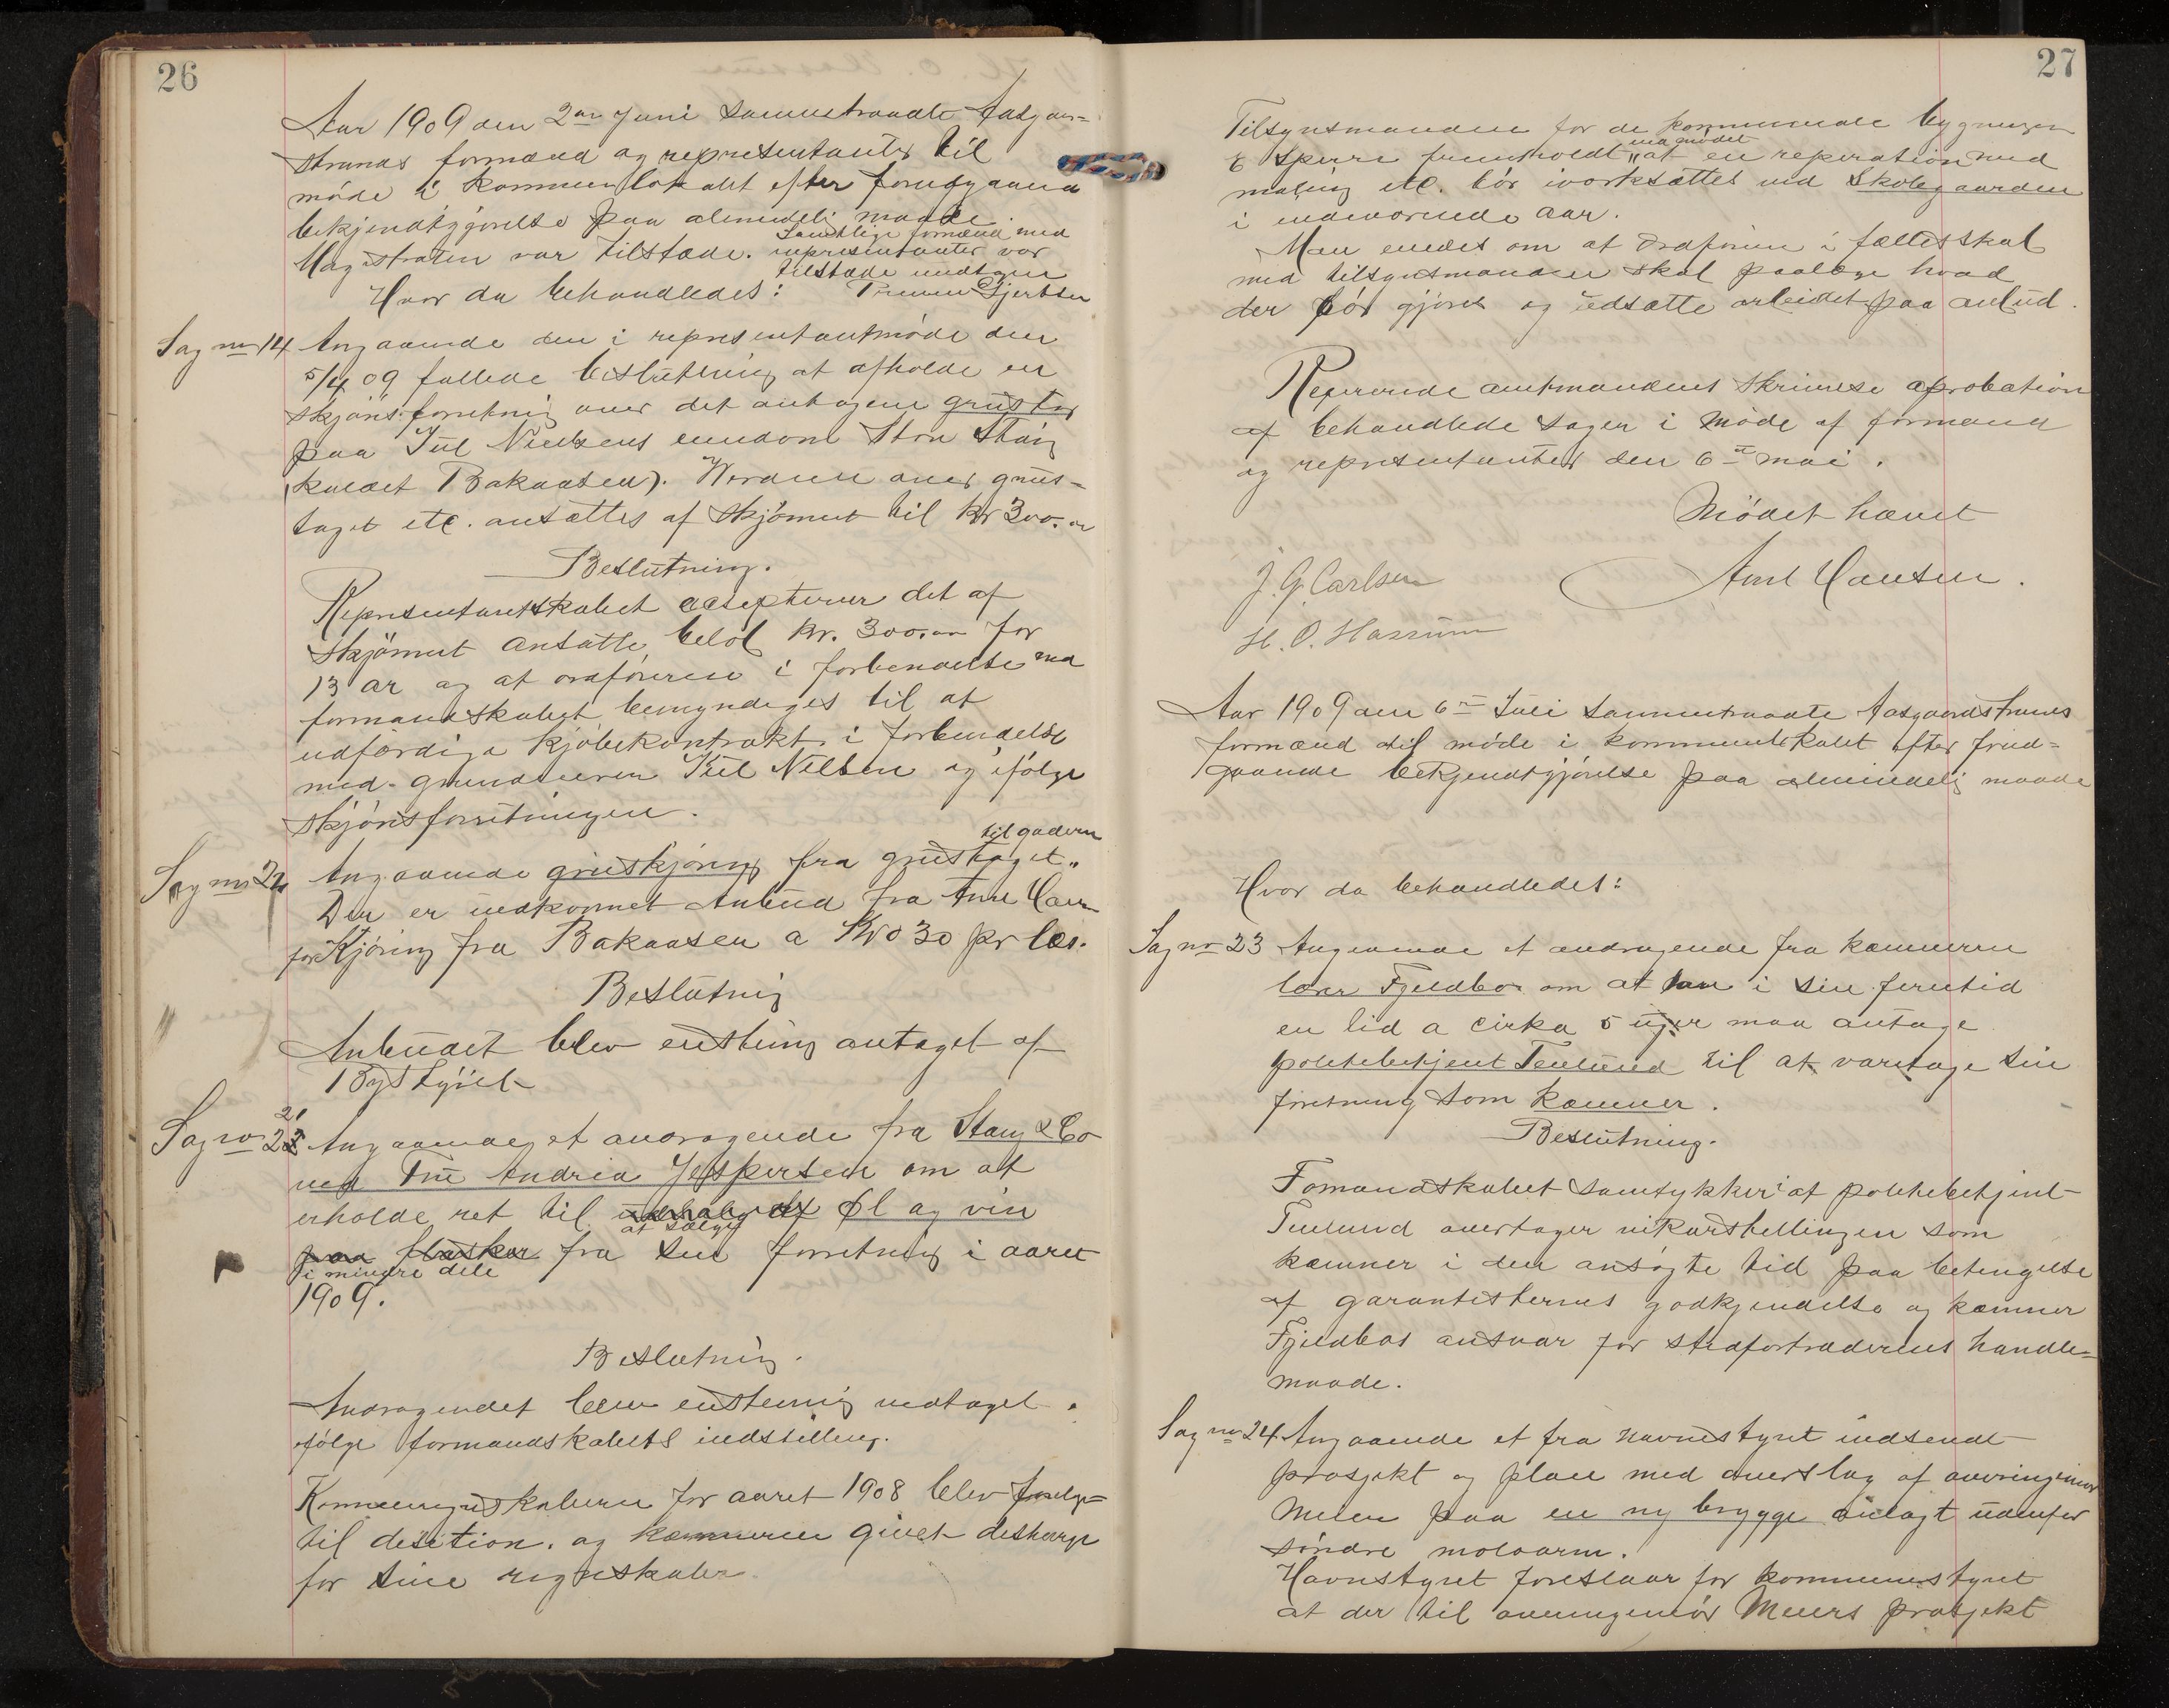 26
Aar 1909 den 2den Juni sammentraadte Aasgaard=
strands formænd og representanter til
møde i kommunelokalet efter forudgaaende
bekjendtgjørelse paa almindelig maade.
Magistraten var tilstæde. Samtlige formænd med
representanter var
tilstæde undtagen
Hvor da behandledes:
Sag no 14 Angaaende den i representantmøde den
5/4 09 fattede beslutning at afholde en
skjønsforretning over det antagene grustag
paa Jul Nielsens eiendom Store Stang
(kaldet Bakaasen). Werdien over grus=
taget etc. ansættes af skjønnet til Kr 300.00
Beslutning.
Representantskabet accepterer det af
skjønnet ansatte beløb Kr. 300.00 for
13 ar og at ordføreren i forbendelse med
formandskabet bemyndiges til at
udfærdige kjøbekontrakt i forbendelse
med grundeieren Jul Nilsen og ifølge
skjønsforretningen.
Sag no 22 Angaaende gruskjøring fra grustaget " til gaderne
Der er indkommet Anbud fra Arne Hansen
for Kjøring fra Bakaasen a Kr 0 30 pr læs.
Beslutning
" Anbudet blev enstemig antaget af
Bystyret
Sag no 21 Angaaende et andragende fra Stang & Co
ved Fru Andrea Jespersen om at
erholde ret til udsalg af at sælge Øl og vin
paa flasker fra sin forretning i aaret
i mindre dele
1909.
Beslutning.
Andragendet blev enstemig vedtaget
ifølge formandskabets indstilling.
Kommuneregnskaberne for aaret 1908 blev forelagt
til desition. og kæmneren givet desharge
for sine regnskaber
27
Tilsynsmanden for de kommunale bygninger
E Sperre fremholdt " ved mødet at en reperation med
maling etc. bør iverksættes ved Skolegaarden
i indeværende aar.
Man enedes om at Ordføren i fællesskab
med tilsynsmanden skal paalægge hvad
der bør gjøres og udsætte arbeidet paa anbud.
Refererede amtmandens skrivelse aprobation
af behandlede sager i møde af formænd
og representanter den 6te mai.
Mødet hævet
J. G. Carlsen
Ant Hansen.
H. O. Hassum
Aar 1909 den 6te Juli sammentraadte Aasgaardstrands
formænd til møde i kommunelokalet efter forud=
gaaende bekjendtgjørelse paa almindelig maade
Hvor da behandledes:
Sag no 23 Angaaende et andragende fra kæmneren
lærer Fjeldbo om at han i sin ferietid
en tid a cirka 5 uger maa antage
politibetjent Tenlund til at varetage sin
forretning som kæmner.
Beslutning.
Fomandskabet samtykker i at politibetjent
Tenlund overtager vikarstellingen som
kæmner i den ansøgte tid paa betingelse
af garantisternes godkjendelse og kæmner
Fjeldbos ansvar for stedfortræderens handle=
maade.
Sag no 24 Angaaende et fra Havnestyret indsendt
prosjekt og plan med overslag af overingeniør
Meier paa en ny brygge anlagt udenfor
søndre moloarm.
Havnestyret foreslaar for kommunestyret
at der til overingeniør Meiers prosjekt